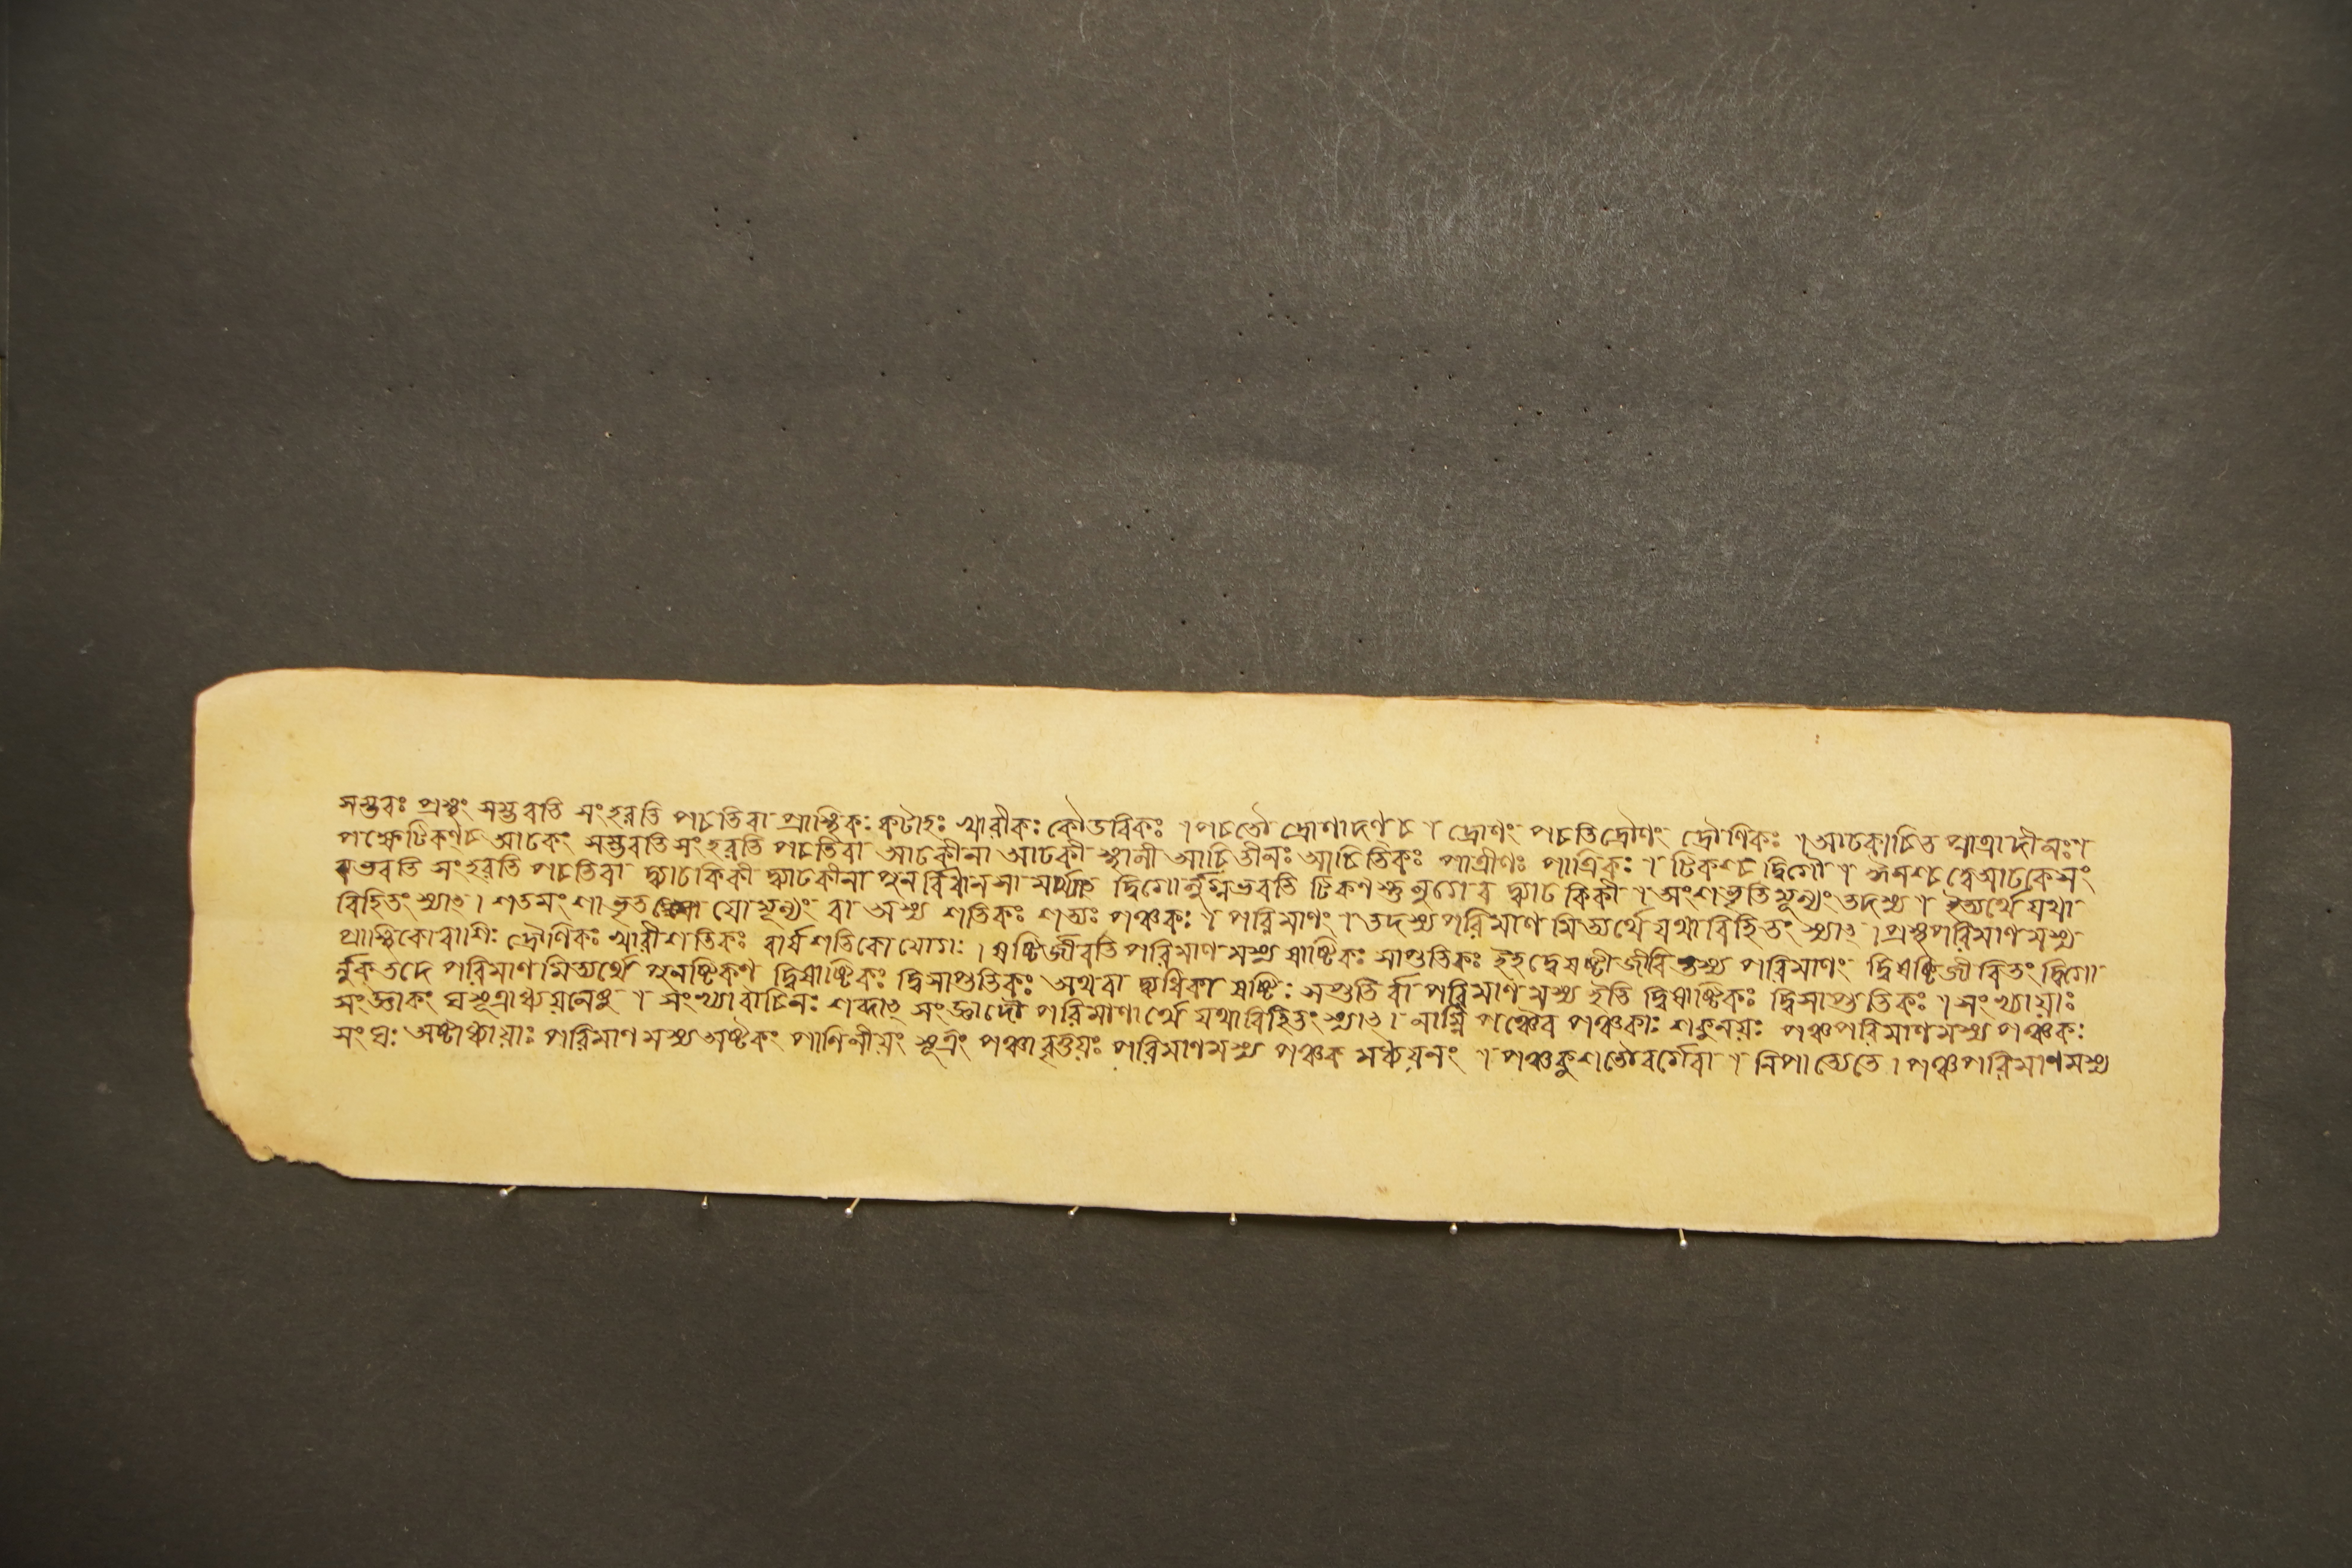 সম্ভবঃ প্রস্থং সম্ভবতি সংহরতি পচতিবা প্রাস্থিকঃ কটাহঃ খারীকঃ কৌডবিকঃ । পচতৌ দ্রোণাদণচ । দ্রোণং পচতিদ্রৌণং দ্রৌণিকঃ । আঢকাচিত পাত্রাদীনঃ ।
পক্ষেটিকণচ আঢকং সম্ভবতি সংহরতি পচতিবা আঢকীনা আঢকী স্থালী আচিতীনঃ আচিতিকঃ পাত্রীণঃ পাত্রিকঃ । টিকণচ দ্বিগৌ । ঈনশ্চ দ্বেআঢকেসং
ভবতি সংহরতি পচতিবা দ্ব্যাঢকিকী দ্ব্যাঢকীনা পুনর্বিধানসা দ্বিগোর্লুগ্নভবতি টিকণস্তু লুগেব দ্ব্যাঢকিকী । অংশভৃতিমূল্যং তদস্য । ইত্যর্থে যথা
বিহিতং স্যাৎ । শতমংশাভৃত যোমূল্যং বা অস্য শতিকঃ শত্যঃ পঞ্চকঃ । পরিমাণং । তদস্যপরিমাণমিত্যর্থে যথাবিহিতং স্যাৎ । প্রস্থপরিমাণমস্য
প্রাস্থিকোরাশিঃ দ্রৌণিকঃ খারীশতিকঃ বার্ষশতিকো যোগঃ । ষষ্টির্জীবতি পরিমাণমস্য ষাষ্টিকঃ সাপ্ততিকঃ ইহদ্বেষষ্টীজীবিতস্য পরিমাণং দ্বিষষ্টিজীবিতং দ্বিগো
র্লুক্ তদে পরিমাণমিত্যর্থে পুনষ্টিকণ দ্বিষাষ্টিকঃ দ্বিসাপ্ততিকঃ অথবা দ্ব্যধিকা ষষ্টিঃ সপ্ততির্বা পরিমাণমস্য ইতি দ্বিষাষ্টিকঃ দ্বিসাপ্ততিকঃ । সংখ্যায়াঃ
সংজ্ঞাকং ঘসূত্রাধ্যয়নেষু । সংখ্যাবাচিনঃ শব্দাৎ সংজ্ঞাদৌ পরিমাণার্থে যথাবিহিতং স্যাৎ । নাম্নি পঞ্চৈব পঞ্চকাঃ শকুনয়ঃ পঞ্চপরিমাণমস্য পঞ্চকঃ
সংঘঃ অষ্টাধ্যায়াঃ পরিমাণমস্য অষ্টকং পাণিনীয়ং সূত্রং পঞ্চাবৃত্তয়ঃ পরিমাণমস্য পঞ্চকমধ্যয়নং । পঞ্চদ্দশতৌবর্গেবা । নিপাত্যেতে । পঞ্চপরিমাণমস্য